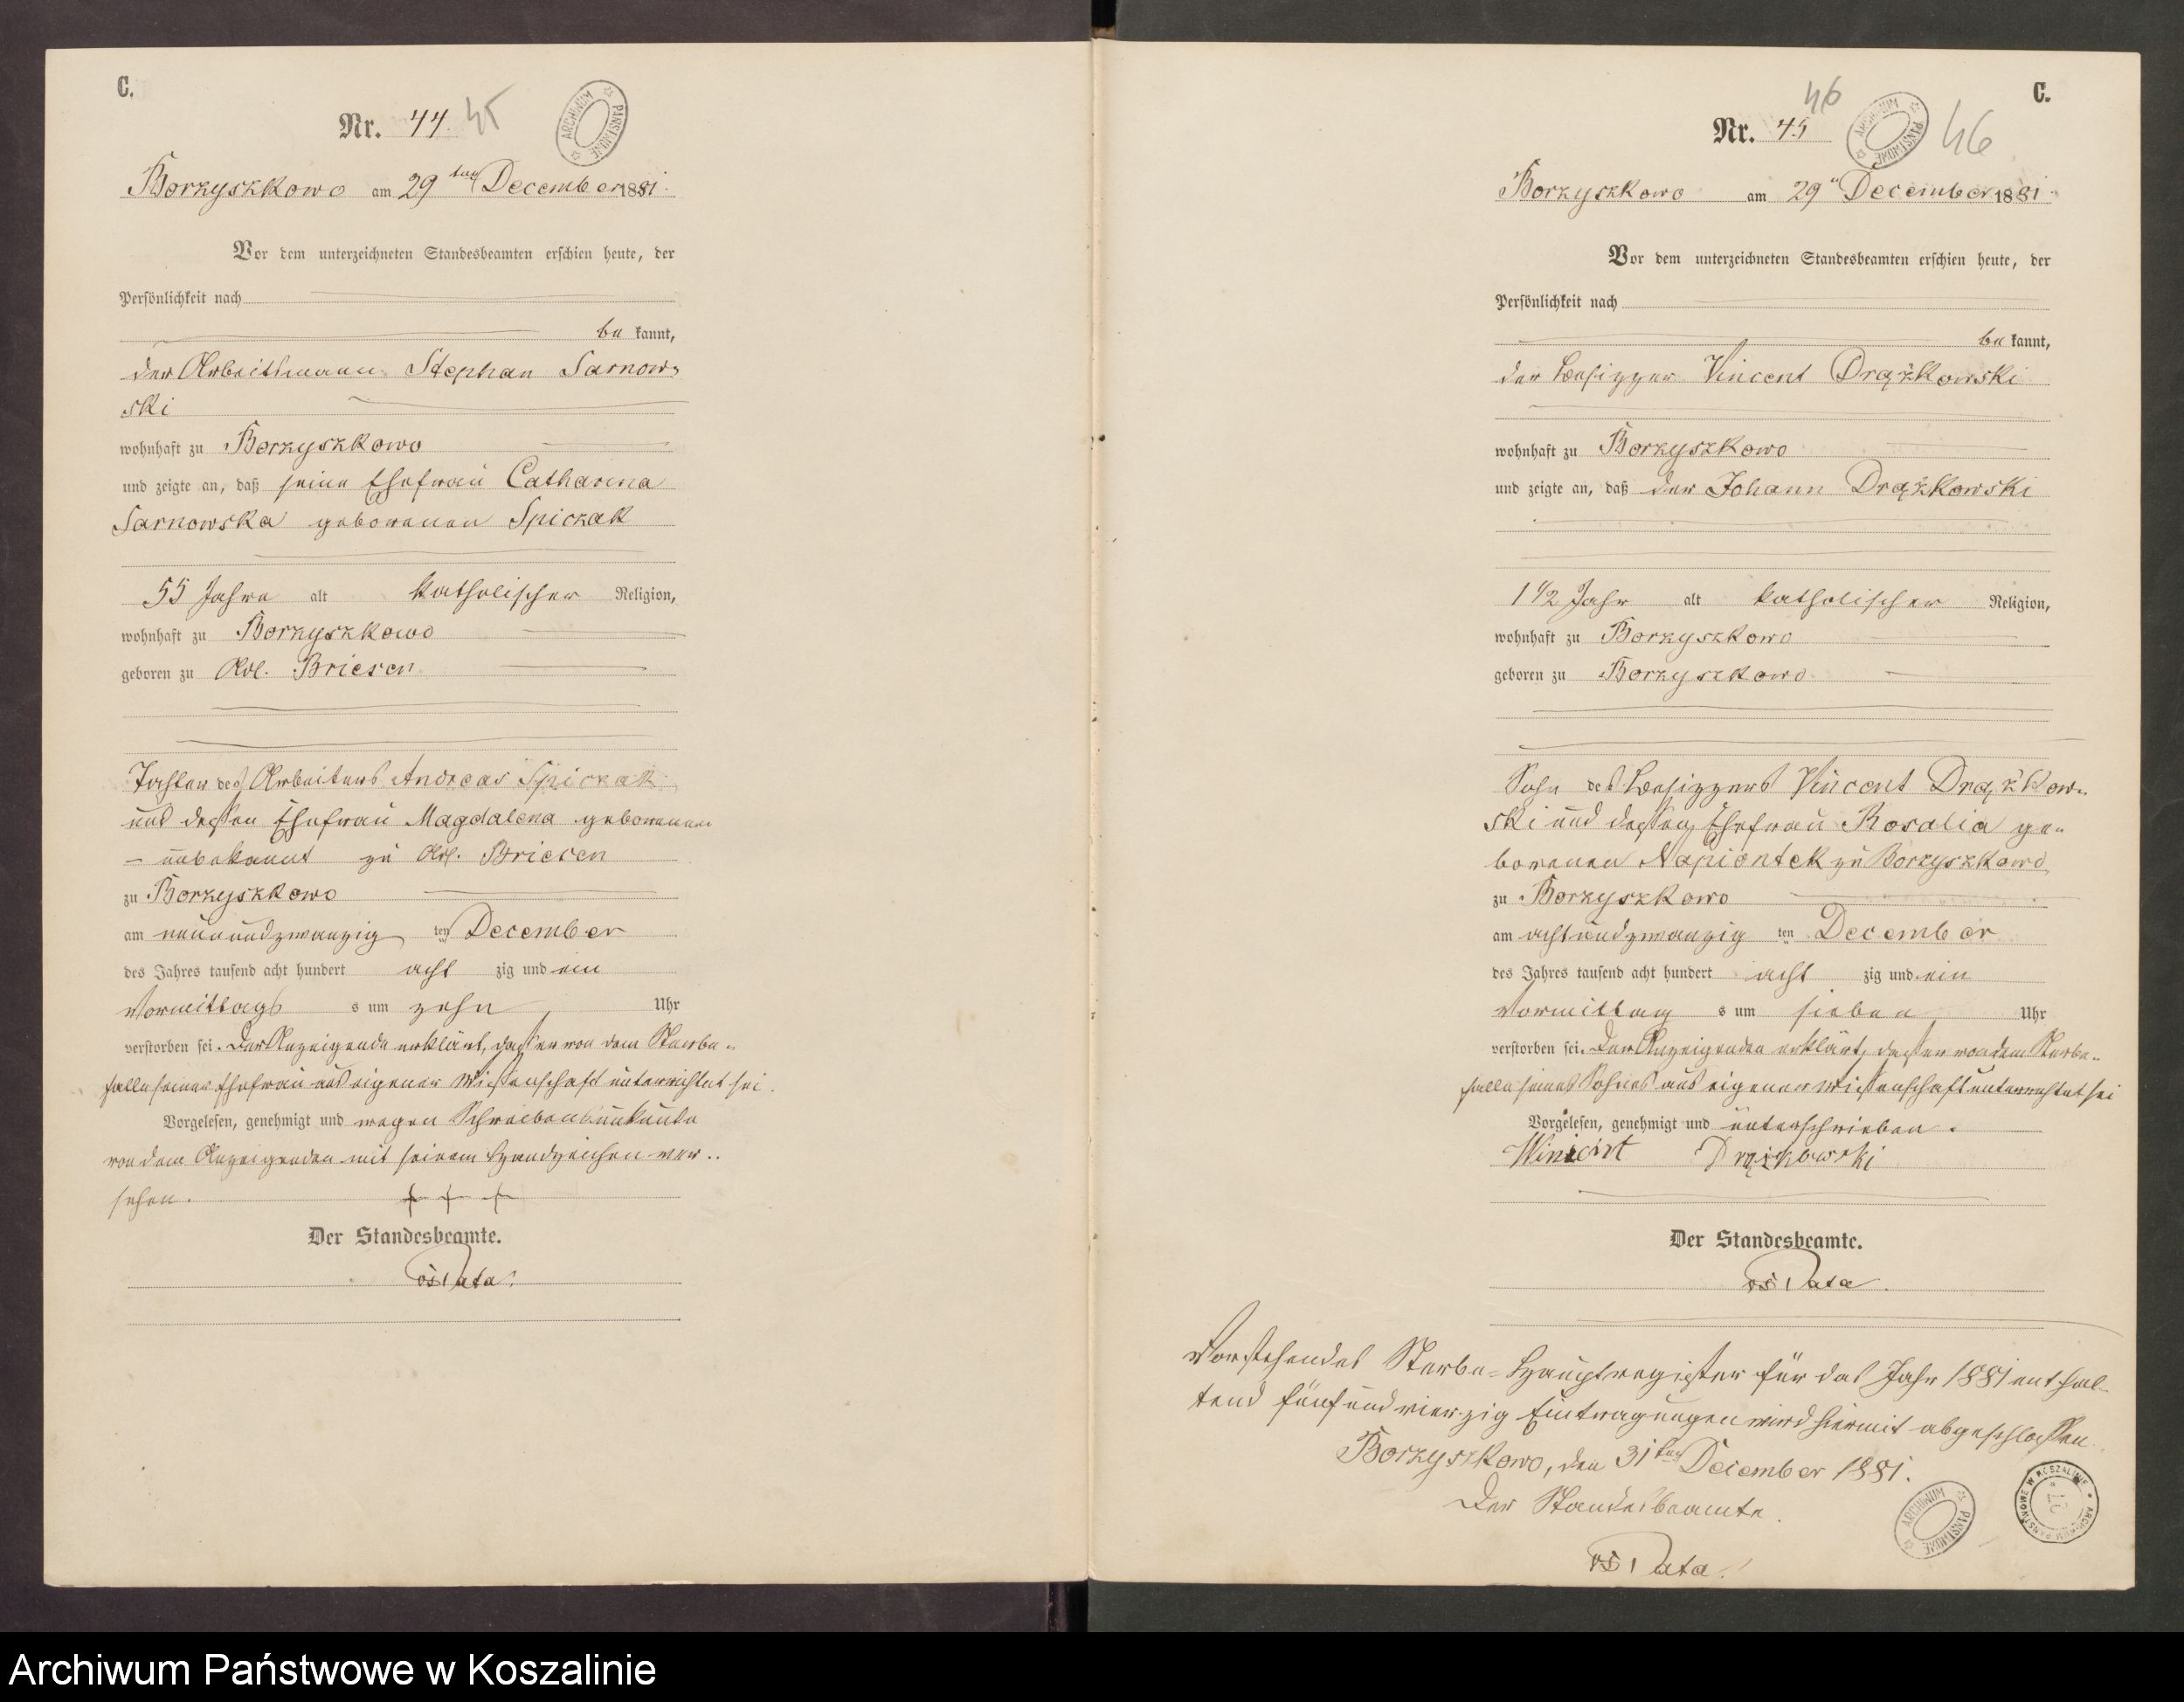 C.
Nr. 44. 45
ARCHIWUM PAŃSTWOWE
Borzyszkowo am 29ten December 1881.
Vor dem unterzeichneten Standesbeamten erschien heute, der
Persönlichkeit nach
be kannt,
der Arbeitsmann Stephan Sarnow-
ski
wohnhaft zu Borzyszkowo
und zeigte an, daß seine Ehefrau Catharina
Sarnowska geborenen Spiczak
55 Jahre alt katholischer Religion,
wohnhaft zu Borzyszkowo
geboren zu Adl. Briesen
Tochter des Arbeiters Andreas Spiczak
und dessen Ehefrau Magdalena geborenen
– unbekannt zu Adl. Briesen
zu Borzyszkowo
am neunundzwanzig ten December
des Jahres tausend acht hundert acht zig und ein
Vormittags s um zehn Uhr
verstorben sei. Der Anzeigende erklärt, daß er von dem Sterbe-
falle seiner Ehefrau aus eigener Wissenschaft unterrichtet sei.
Vorgelesen, genehmigt und wegen Schreibensunkunde
von dem Anzeigenden mit seinem Handzeichen ver-
sehen. + + +
Der Standesbeamte.
C.
46
Nr. 45
ARCHIWUM PAŃSTWOWE
46
Borzyszkowo am 29" December 1881.
Vor dem unterzeichneten Standesbeamten erschien heute, der
Persönlichkeit nach
be kannt,
der Besitzer Vincent Drążkowski
wohnhaft zu Borzyszkowo
und zeigte an, daß der Johann Drążkowski
1 1/2 Jahr alt katholischer Religion,
wohnhaft zu Borzyszkowo
geboren zu Borzyszkowo
Sohn des Besitzers Vincent Drążkow-
ski und dessen Ehefrau Rosalia ge-
borenen Napiontek zu Borzyszkowo
zu Borzyszkowo
am achtundzwanzig ten December
des Jahres tausend acht hundert acht zig und ein
Vormittag s um sieben Uhr
verstorben sei. Der Anzeigenden erklärt, daß er von dem Sterbe-
falle seines Sohnes aus eigener Wissenschaft unterrichtet sei
Vorgelesen, genehmigt und unterschrieben.
Winicint Drążkowski
Der Standesbeamte.
Vorstehendes Sterbe-Hauptregister für das Jahr 1881 enthal-
tend fünfundvierzig Eintragungen wird hiermit abgeschlossen.
Borzyszkowo, den 31ten December 1881.
Der Standesbeamte.
ARCHIWUM PAŃSTWOWE
ARCHIWUM PAŃSTWOWE W KOSZALINIE
Archiwum Państwowe w Koszalinie